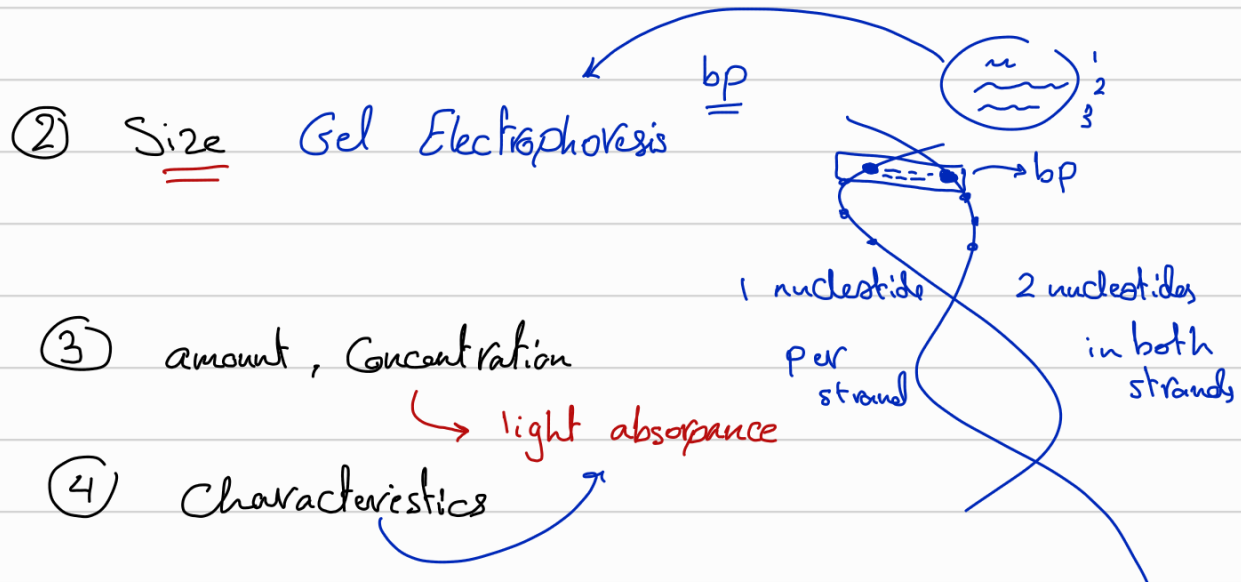 bp
1
2
3
② Size Gel Electrophoresis
bp
1 nucleotide
per
strand
2 nucleotides
in both
strands
③ amount, Concentration
light absorpance
④ Characteristics